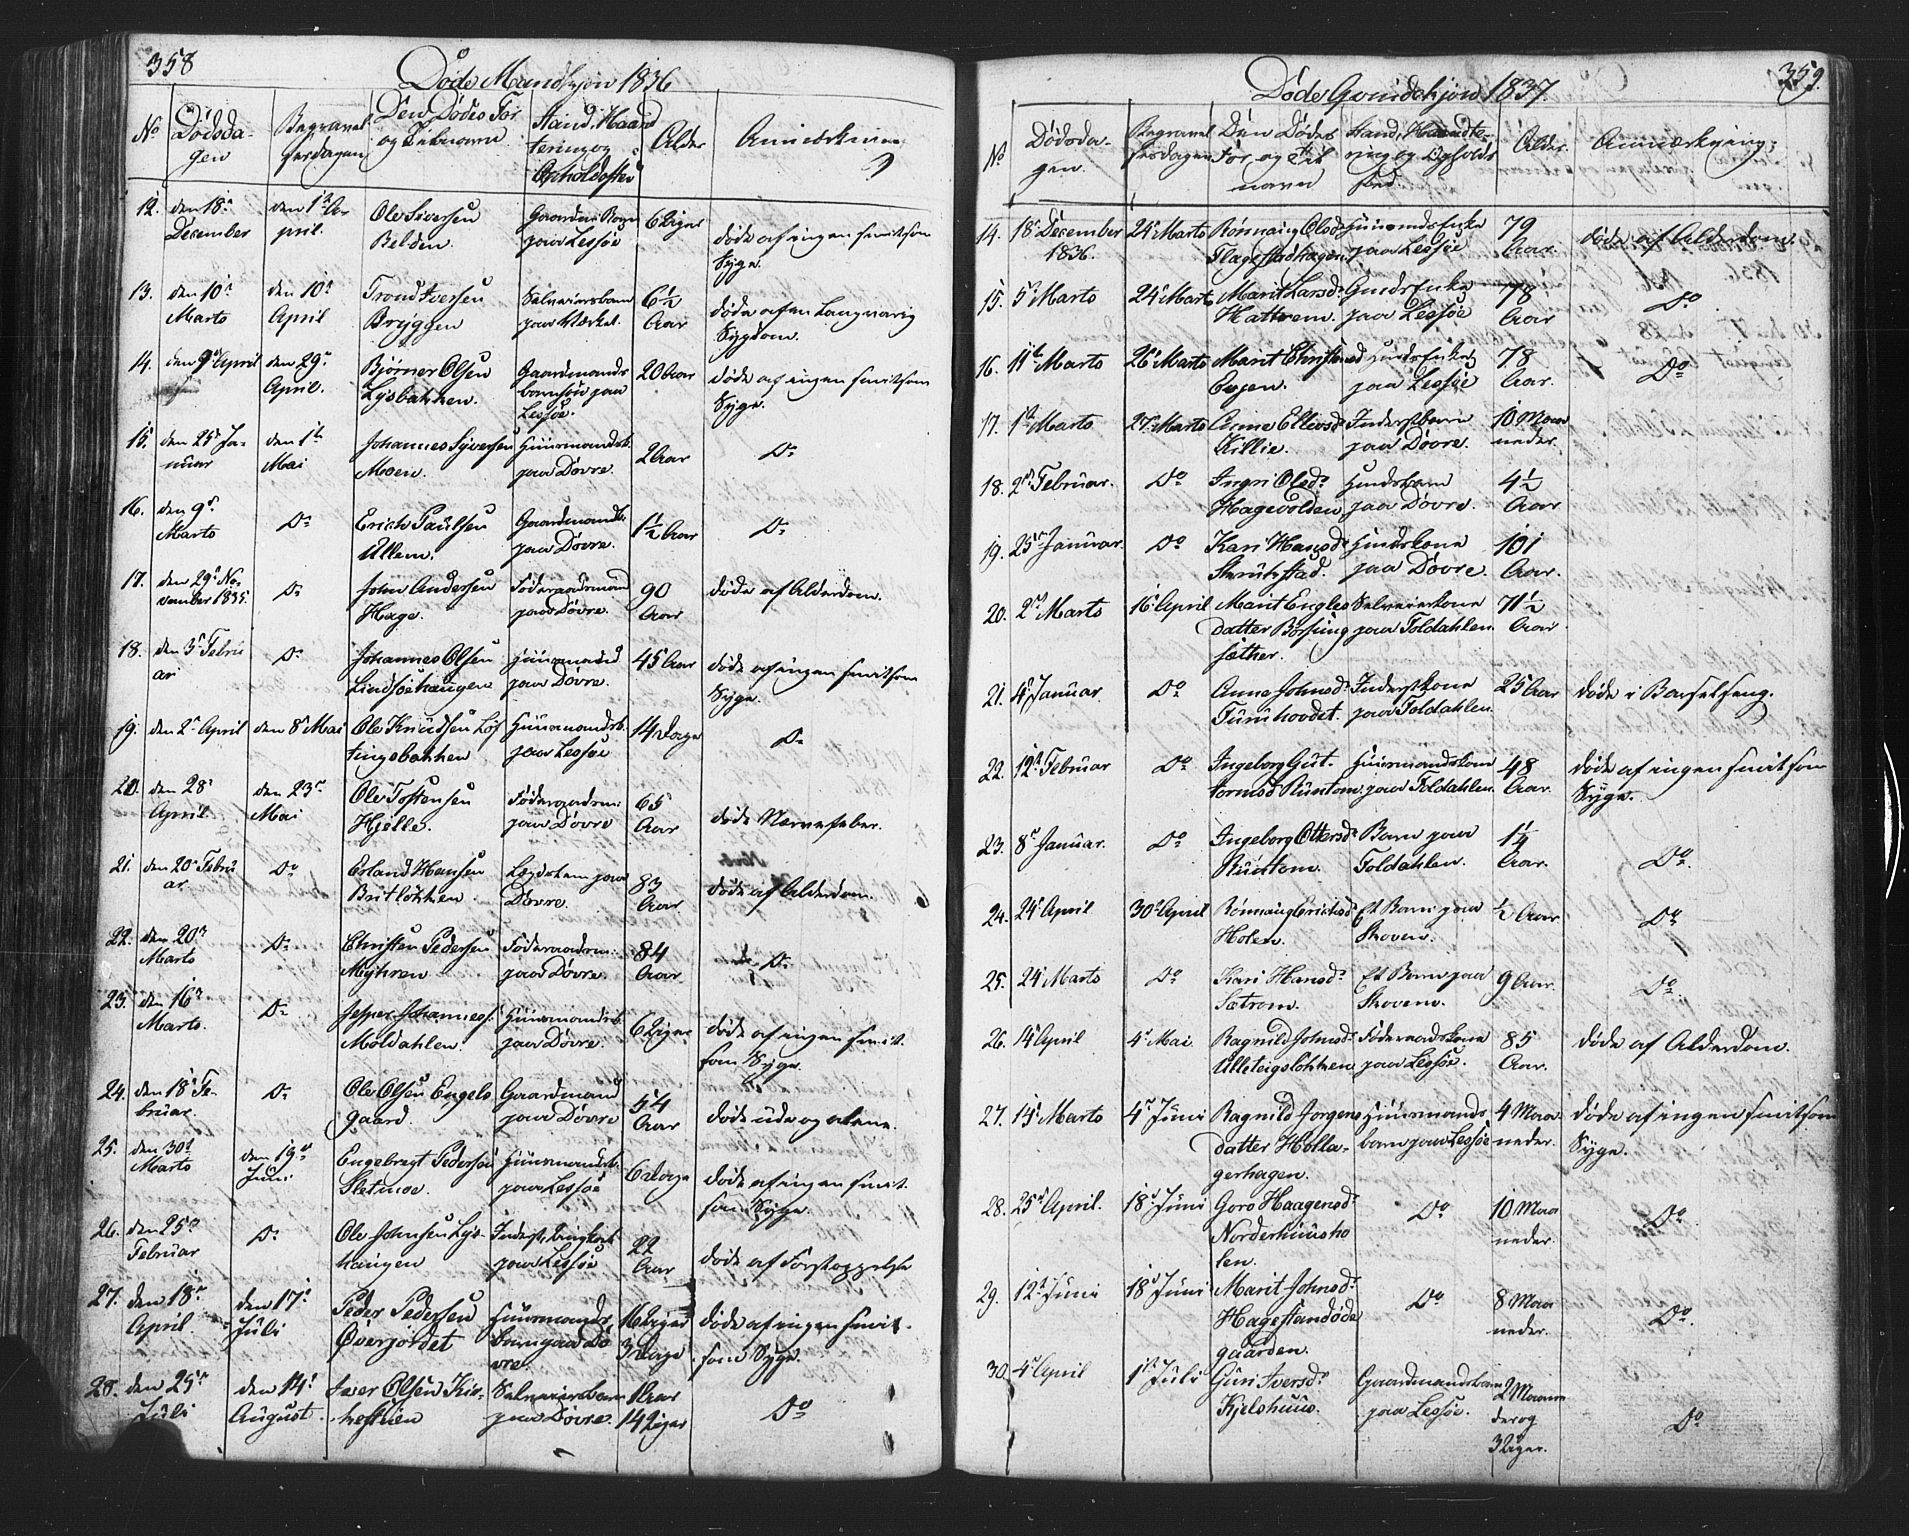 358
Døde Mandkjøn 1836
No
Dødsda-
gen
Begravel
sesdagen
Den Dødes For
og Tilnavn
Stand, Haand
tering og
Opholdsted
Alder
Anmærkning
12. den 18de December
den 1ste April.
Ole Siversen Belden.
paa Lessøe
6 Uger
døde af ingen smitsom Syge.
13. den 10de Marts
den 10de April
Trond Iversen Bryggen
Selveiersbarn paa Værket.
6½ Aar
døde af en Langvarig Sygdom.
14. den 9de April
den 29de April.
Bjørner Olsen Lysbakken.
Gaardmands barnsøn paa Lessøe.
20 Aar
døde af ingen smitsom Syge.
15. den 25de Januar
den 1ste Mai
Johannes Syversen Moen.
Huusmandsb. paa Dovre.
2 Aar
Do
16. den 9de Marts
Do
Erich Paulsen Ullem.
Gaardmandsb. paa Dovre.
1½ Aar
Do
17. den 29de November 1835.
Do
John Andersen Hage.
Føderaadsmand paa Dovre.
90 Aar
døde af Alderdom.
18. den 3de Februar
Do
Johannes Olsen Lindsøehaugen
Huusmand paa Dovre.
45 Aar
døde af ingen smitsom Syge.
19. den 2den April
den 8de Mai
Ole Knudsen Løftingsbakken
Huusmandsb. paa Lessøe
14 Dage
Do
20. den 28de April.
den 23de Mai
Ole Tostensen Hjelle.
Føderaadsm: paa Dovre
65 Aar
døde Nervefeber.
21. den 20de Februar
Do
Erland Hansen Britløkken.
Lægdslem paa Dovre.
83 Aar
døde af Alderdom.
22. den 20de Marts
Do
Christen Pedersen Myhren
Føderaadsm: paa Dovre.
84 Aar
Do
23. den 16de Marts.
Do
Jesper Johanness: Moldahlen.
Huusmandsb. paa Dovre.
6 Uger
døde af ingen smitsom Syge.
24. den 18de Februar.
Do
Ole Olsen Engelsgaard.
Gaardmand paa Dovre
54 Aar
døde ude og alene.
25. den 30te Marts
den 19de Juni
Engebregt Pedersen Sletmoe.
Huusmandsb. paa Lessøe
6 Dage
døde af ingen smitsom Syge.
26. den 25de Februar
Do
Ole Johnsen Lyshaugen
paa Lessøe
22 Aar
døde af Forstoppelse
27. den 18de April.
den 17de Juli
Peder Pedersen Øverjordet
Huusmands barn paa Dovre.
16 Uger 3 Dage
døde af ingen smitsom Syge.
28. den 25de Juli
den 14de August.
Iver Olsen
Selveiersbarn paa Dovre.
1 Aar 14 Uger
Do
359.
Døde Qvindekjøn 1837.
No
Dødsda-
gen.
Begravel
sesdagen
Den Dødes
For og Til
navn
Stand, Haandte-
ring og Opholds
sted.
Alder.
Anmærkning:
14. 18de December 1836.
24de Marts
Rønnaug Olsdr Flagestadhagen
Huusmdsenke paa Lessøe
79 Aar.
døde af Alderdom.
15. 5te Marts
24de Marts
Marit Larsdr Hattrem.
Gmdsenke paa Lessøe
78 Aar
Do
16. 11te Marts
26de Marts
Marit Christensd
Hmdsenke paa Lessøe
78 Aar.
Do
17. 1ste Marts
27de Marts
Anne Ellevsd Killie.
Inderstbarn paa Dovre.
10 Maaneder.
18. 2den Februar.
Do
Ingri Olsdr Hagevolden
Hmdsbarn paa Dovre.
4½ Aar
19. 25de Januar.
Do
Kari Hansdr
Hmdskone paa Dovre.
101 Aar.
20. 2den Marts
16de April
Marit Engles datter Børsungsæther.
Selveierkone paa Foldahlen.
71½ Aar
21. 4de Januar
Do
Anne Johnsdr
Inderstkone paa Foldahlen.
25 Aar
døde i Barselseng.
22. 12te Februar
Do
Ingeborg Gut-tormsd
Huusmandskone paa Foldahlen.
48 Aar.
døde af ingen smitsom Syge.
23. 8de Januar.
Do
Ingeborg Ottersdr
Barn paa Foldahlen.
1¼ Aar.
Do.
24. 24de April
30te April
Rønnaug Erichsd Holen.
Et Barn paa Skoven.
½ Aar.
Do
25. 24de Marts
Do
Kari Hansdr Sætrom.
Et Barn paa Skoven.
9 Aar.
Do.
26. 14de April
4de Mai.
Ragnild Johnsdr Ulleteigsløkken
Føderaadskone paa Lessøe.
85 Aar.
døde af Alderdom.
27. 15de Marts
4de Juni
Ragnild Jorgens datter Hollagerhagen.
Huusmands barn paa Lessøe
4 Maaneder.
døde af ingen smitsom Syge.
28. 25de April.
18de Juni
Goro Haagensd Norderhuusholen.
Do
10 Maaneder.
Do
29. 12te Juni
18de Juni
Marit Johnsdr Hagestandødegaarden.
Do
8 Maaneder.
Do.
30. 4de April
1ste Juli
Guri Iversdr Kjelshuus.
Gaardmandsbarn paa Lessøe.
2 Maaneder og 3 Uger.
Do